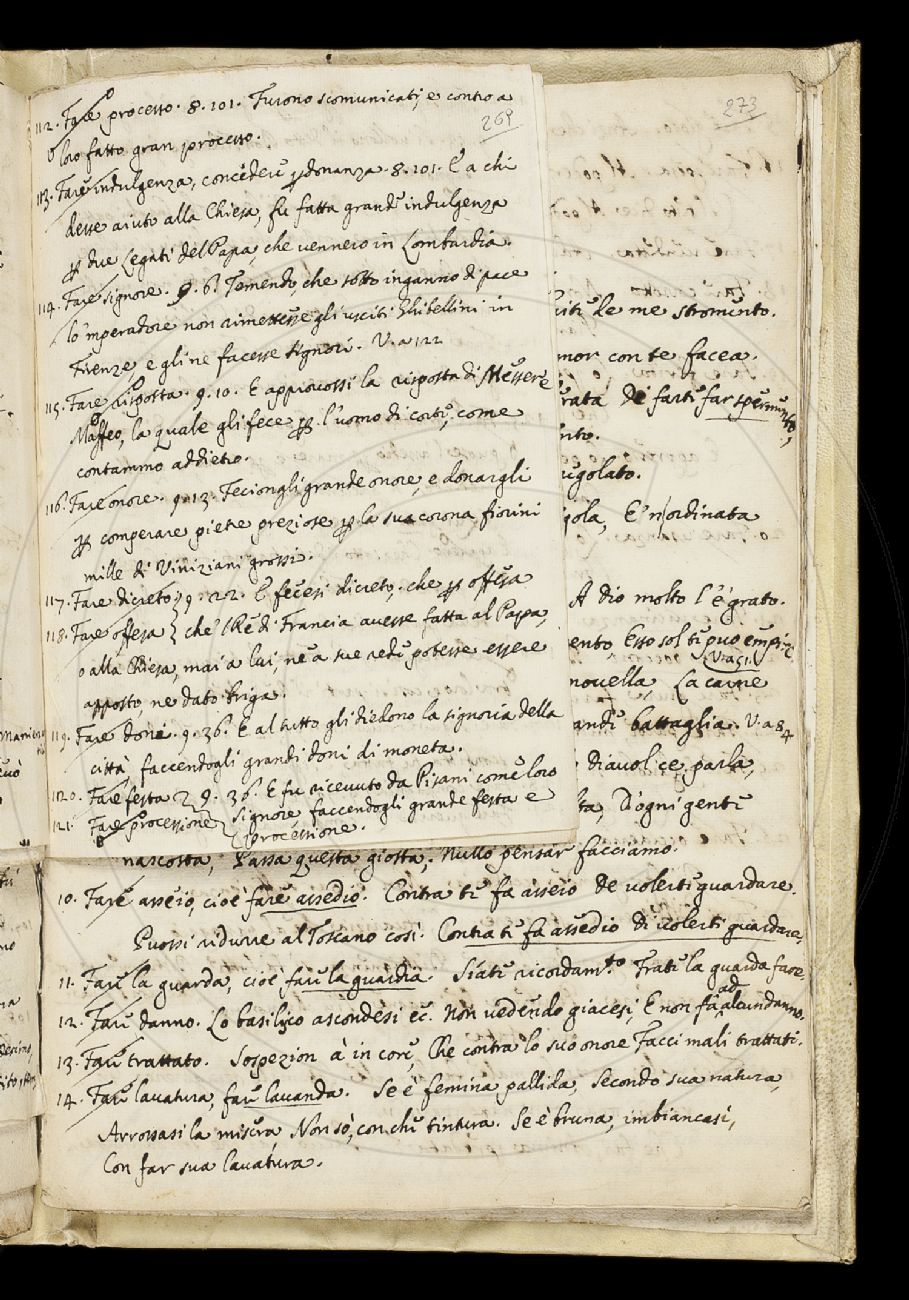 269
112. Fare processo. 8. 101. Furono scomunicati, e contro a
loro fatto gran processo.
113. Fare indulgenza, concedere ꝑdonanza. 8. 101. E a chi
desse aiuto alla Chiesa, fu fatta grande indulgenza
ꝑ due Legati del Papa, che vennero in Lombardia.
114. Fare signore. 9. 6. Temendo, che sotto inganno di pace
lo 'mperadore non rimettesse gli usciti Ghibellini in
Firenze, e gli ne facesse signori. V. a 122
115. Fare risposta. 9. 10. E approvossi la risposta di Messere
Maffeo, la quale gli fece ꝑ l'uomo di corte, come
contammo addietro.
116. Fare onore. 9. 13. Feciongli grande onore, e donargli
ꝑ comperare pietre preziose ꝑ la sua corona fiorini
mille di Viniziani grossi.
117. Fare dicreto } 9. 22. E fecesi dicreto, che ꝑ offesa
118. Fare offesa } che 'l Re di Francia avesse fatta al Papa,
o alla Chiesa, mai a lui, ne a sue rede potesse essere
apposto, ne dato briga.
119. Fare doni. 9. 36. E al tutto gli diedono la signoria della
città, faccendogli grandi doni di moneta.
120. Fare festa } 9. 36. E fu ricevuto da Pisani come loro
121. Fare processione { signore faccendogli grande festa e
processione.
273
le me stromento.
con te facea.
di farti far spermento,
A dio molto l'è grato.
Esso sol ti può empire
V. a 51.
novella, La carne
battaglia. V. a 84
Diavol ce parla,
D'ogni gente
nascosta, Passa questa giosta, Nullo pensar facciamo.
10. Fare asseio, cioè fare assedio. Contra te fa asseio De volerti guardare.
Puossi ridurre al Toscano così. Contra te fa assedio di volerti guardare.
11. Fare la guarda, cioè fare la guardia. Siati ricordam.to Frate la guarda fare.
12. Fare danno. Lo basilico ascondesi ec. Non vedendo giacesi, E non fa ad alcun danno.
13. Fare trattato. Sospezion à in core, Che contra lo suo onore Facci mali trattati.
14. Fare lavatura, fare lavanda. Se è femina pallida, Secondo sua natura,
Arrossasi la misera, Non sò, con che tintura. Se è bruna, imbiancasi,
Con far sua lavatura.